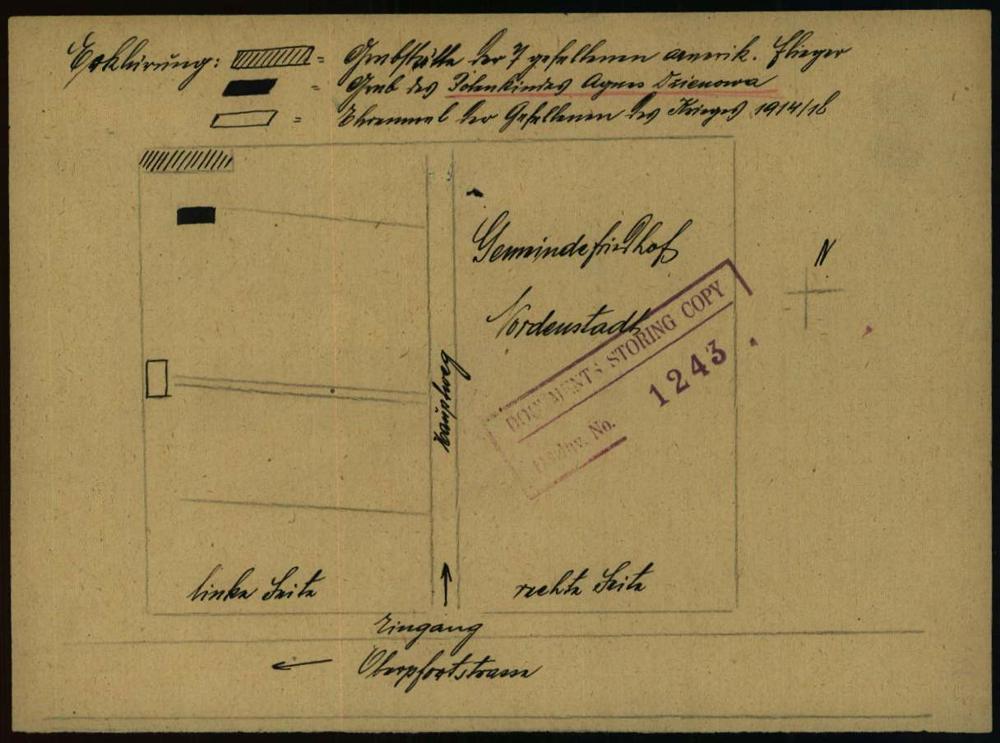 Erklärung: = Grabstätte der 7 gefallenen amerik. Flieger
= Grab des Polenkindes Agnes Dzienowa
= Ehrenmal der Gefallenen des Krieges 1914/18
Gemeindefriedhof
N
Nordenstadt
DOCUMENTS STORING COPY
No. 1243
Hauptweg
linke Seite
rechte Seite
Eingang
Oberpfortstrasse